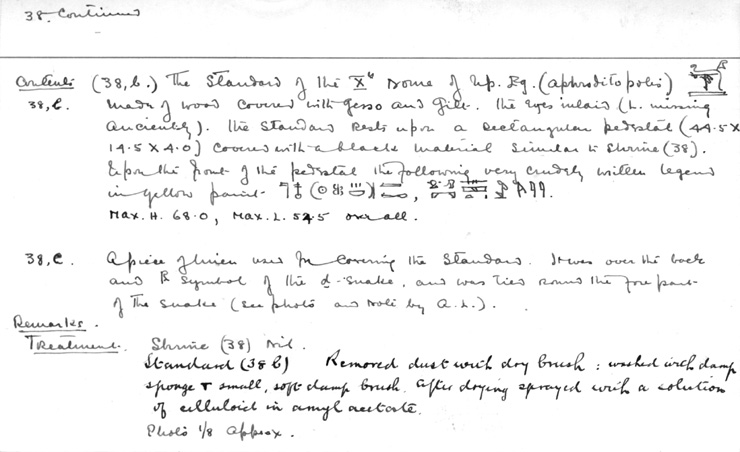 38. Continued
Contents (38, b.) The Standard of the Xth Nome of Up. Eg. (aphroditopolis)
38, b. made of wood covered with gesso and gilt. The Eyes inlaid (L. missing
anciently). The Standard rests upon a rectangular pedestal (44.5 X
14.5 X 4.0) covered with a black material similar to Shrine (38).
Upon the front of the pedestal the following very crudely written legend
in yellow paint -
Max. H. 68.0, Max. L. 54.5 over all.
38, c. A piece of linen used for covering the Standard. It was over the back
and symbol of the snake, and was tied round the fore part
of the snake (see photo and note by A. L.).
Remarks.
Treatment. Shrine (38) Nil.
Standard (38 b) Removed dust with dry brush : washed with damp
sponge & small, soft damp brush. After drying sprayed with a solution
of celluloid in amyl acetate.
Photo 1/8 approx.